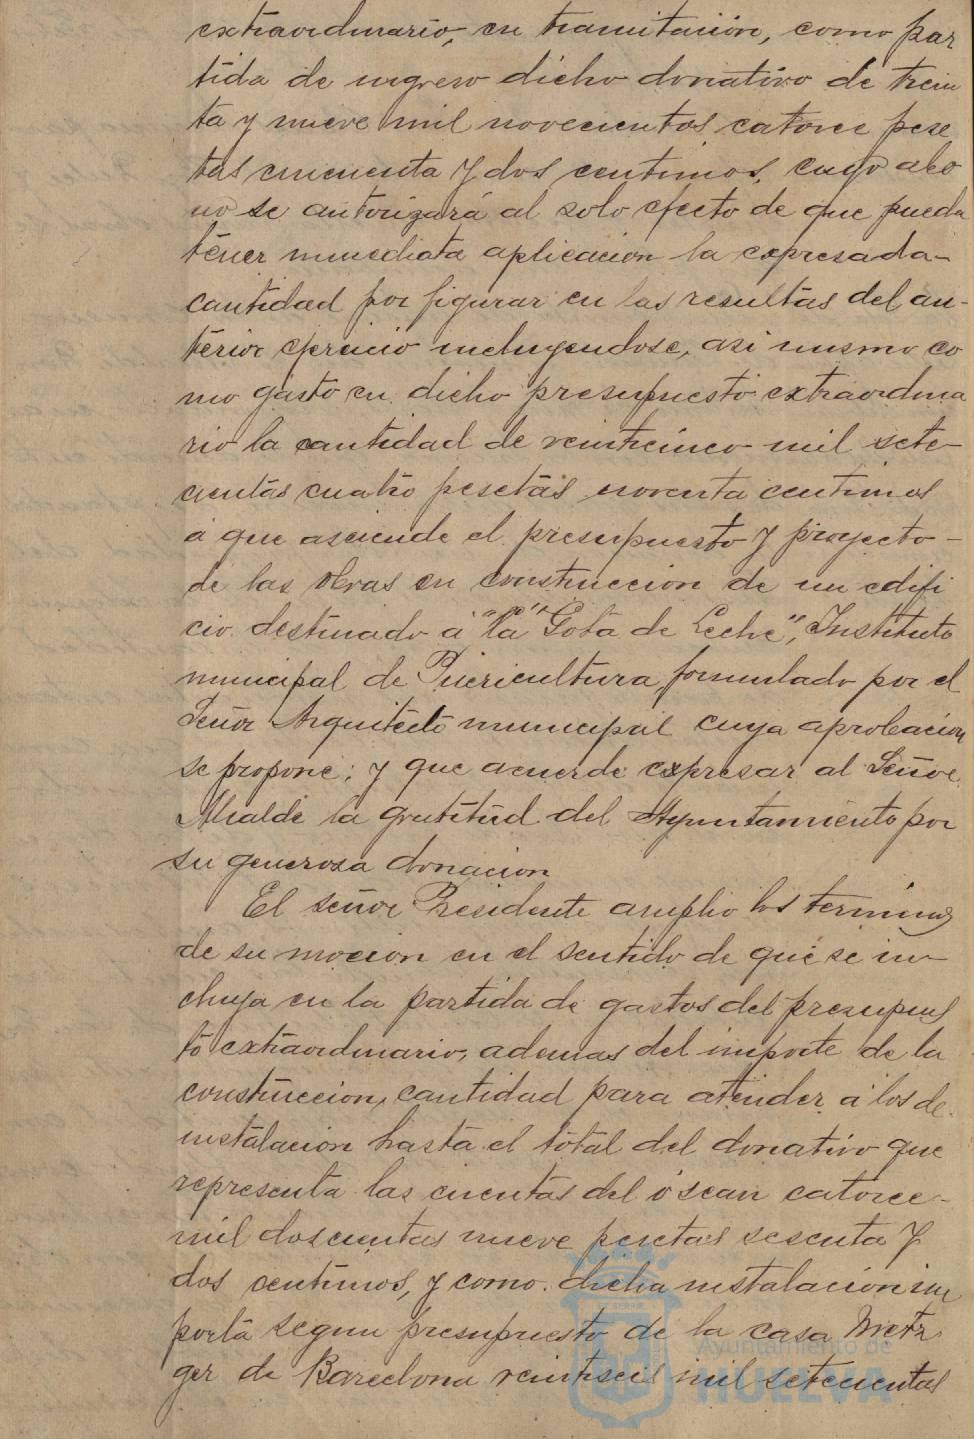 extraordinario, en tramitación, como par
tida de ingreso dicho donativo de trein
ta y nueve mil novecientos catorce pese
tas cincuenta y dos centimos, cuyo abo
no se autorizará al solo efecto de que pueda
tener inmediata aplicacion la expresada-
cantidad por figurar en las resultas del an-
terior ejercicio incluyendose, asi mismo co
mo gasto en dicho presupuesto extraordina
rio la cantidad de veinticinco mil sete-
cientas cuatro pesetas noventa centimos
a que asciende el presupuesto y proyecto-
de las obras en construccion de un edifi
cio destinado á "la "Gota de Leche", Instituto
municipal de Puericultura, formulado por el
Señor Arquitecto municipal cuya aprobacion
se propone; y que acuerde expresar al Señor
Alcalde la gratitud del Ayuntamiento por
su generosa donacion
El señor Presidente amplio los terminos
de su mocion en el sentido de que se in-
cluya en la partida de gastos del presupues
to extraordinario, ademas del importe de la
construccion, cantidad para atender a los de
instalacion hasta el total del donativo que
representa las cuentas del ó sean catorce-
mil doscientas nueve pesetas sesenta y
dos centimos, y como dicha instalacion im
porta segun presupuesto de la casa Metz
ger de Barcelona veintiseis mil setecientas
Ayuntamiento de
HUELVA